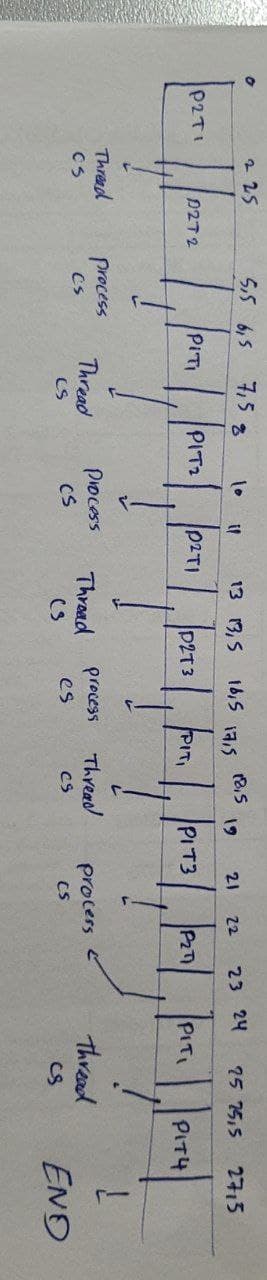 0 2 25 5,5 6,5 7,5 8 10 11 13 13,5 16,5 17,5 18,5 19 21 22 23 24 25 25,5 27,5
P2T1 P2T2 P1T1 P1T2 P2T1 P2T3 P1T1 P1T3 P2T1 P1T1 P1T4
Thread process Thread process Thread process Thread process Thread
CS CS CS CS CS CS CS CS CS END